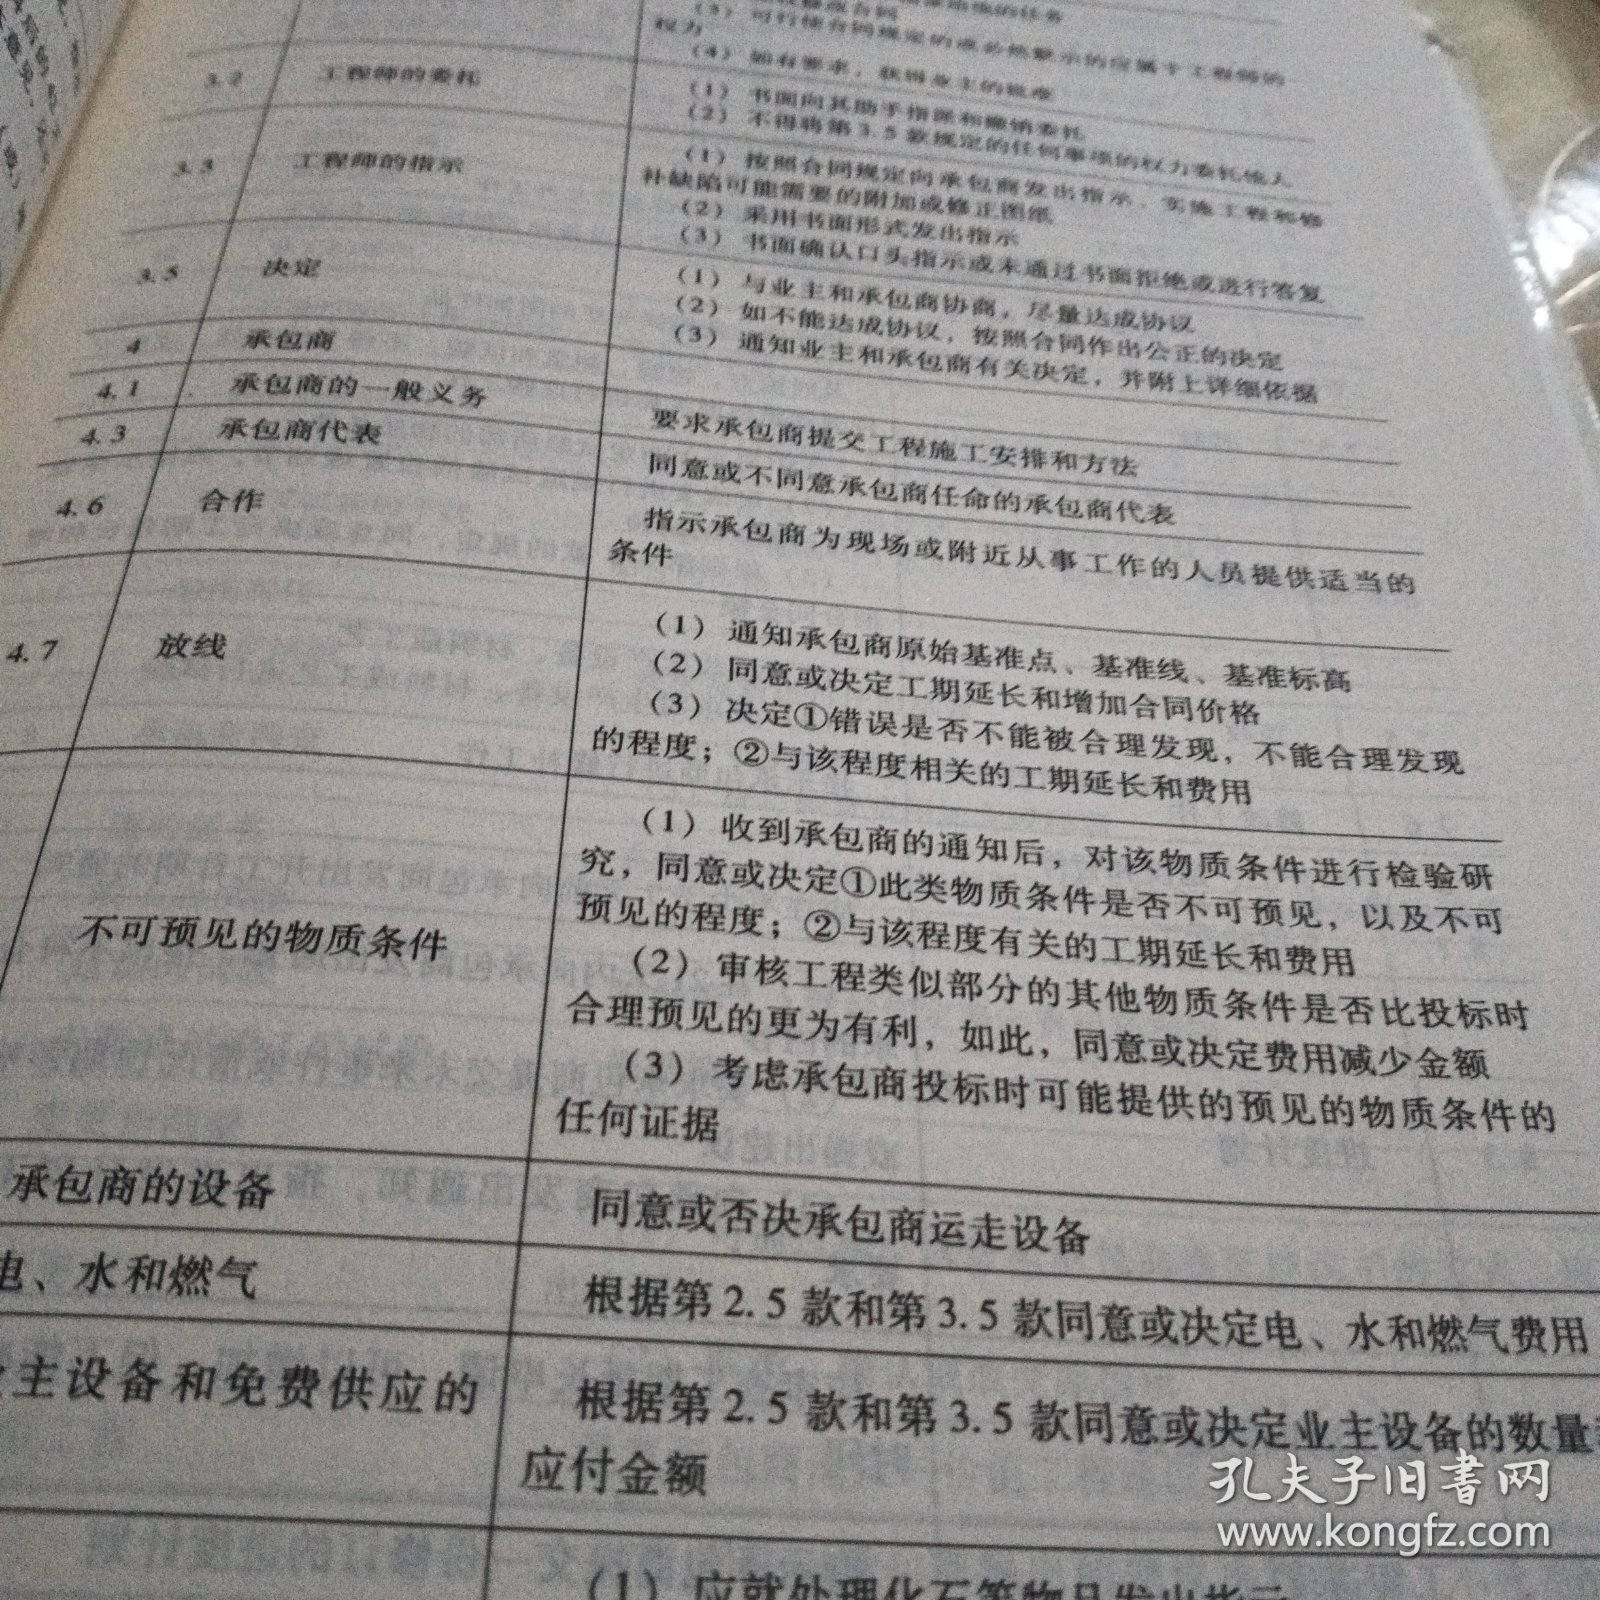 (3) 可行使合同规定的或必然默示的应属于工程师的
权力
(4) 如有要求，获得业主的批准
3.2 工程师的委托
(1) 书面向其助手指派和撤销委托
(2) 不得将第3.5款规定的任何事项的权力委托他人
3.3 工程师的指示
(1) 按照合同规定向承包商发出指示、实施工程和修
补缺陷可能需要的附加或修正图纸
(2) 采用书面形式发出指示
(3) 书面确认口头指示或未通过书面拒绝或进行答复
3.5 决定
(1) 与业主和承包商协商，尽量达成协议
(2) 如不能达成协议，按照合同作出公正的决定
(3) 通知业主和承包商有关决定，并附上详细依据
4 承包商
4.1 承包商的一般义务
要求承包商提交工程施工安排和方法
4.3 承包商代表
同意或不同意承包商任命的承包商代表
4.6 合作
指示承包商为现场或附近从事工作的人员提供适当的
条件
4.7 放线
(1) 通知承包商原始基准点、基准线、基准标高
(2) 同意或决定工期延长和增加合同价格
(3) 决定①错误是否不能被合理发现，不能合理发现
的程度；②与该程度相关的工期延长和费用
不可预见的物质条件
(1) 收到承包商的通知后，对该物质条件进行检验研
究，同意或决定①此类物质条件是否不可预见，以及不可
预见的程度；②与该程度有关的工期延长和费用
(2) 审核工程类似部分的其他物质条件是否比投标时
合理预见的更为有利，如此，同意或决定费用减少金额
(3) 考虑承包商投标时可能提供的预见的物质条件的
任何证据
承包商的设备
同意或否决承包商运走设备
电、水和燃气
根据第2.5款和第3.5款同意或决定电、水和燃气费用
主设备和免费供应的
根据第2.5款和第3.5款同意或决定业主设备的数量
应付金额
(1) 应就处理化石等物品发出指示
孔夫子旧书网
www.kongfz.com